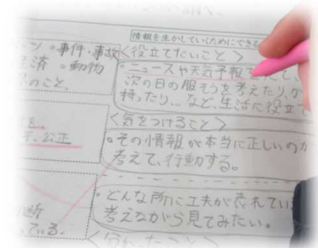 情報を生かしていくためにできる
・事件・事故
・動物
のこと。
＜役立てたいこと＞
・ニュースや天気予報
次の日の服そうを考えたり、か
持ったり…など、生活に役立て
＜気をつけること＞
・その情報が本当に正しいのか
考えて、行動する。
公正
・どんな所に工夫が表れてい
考えながら見てみたい。
ている。